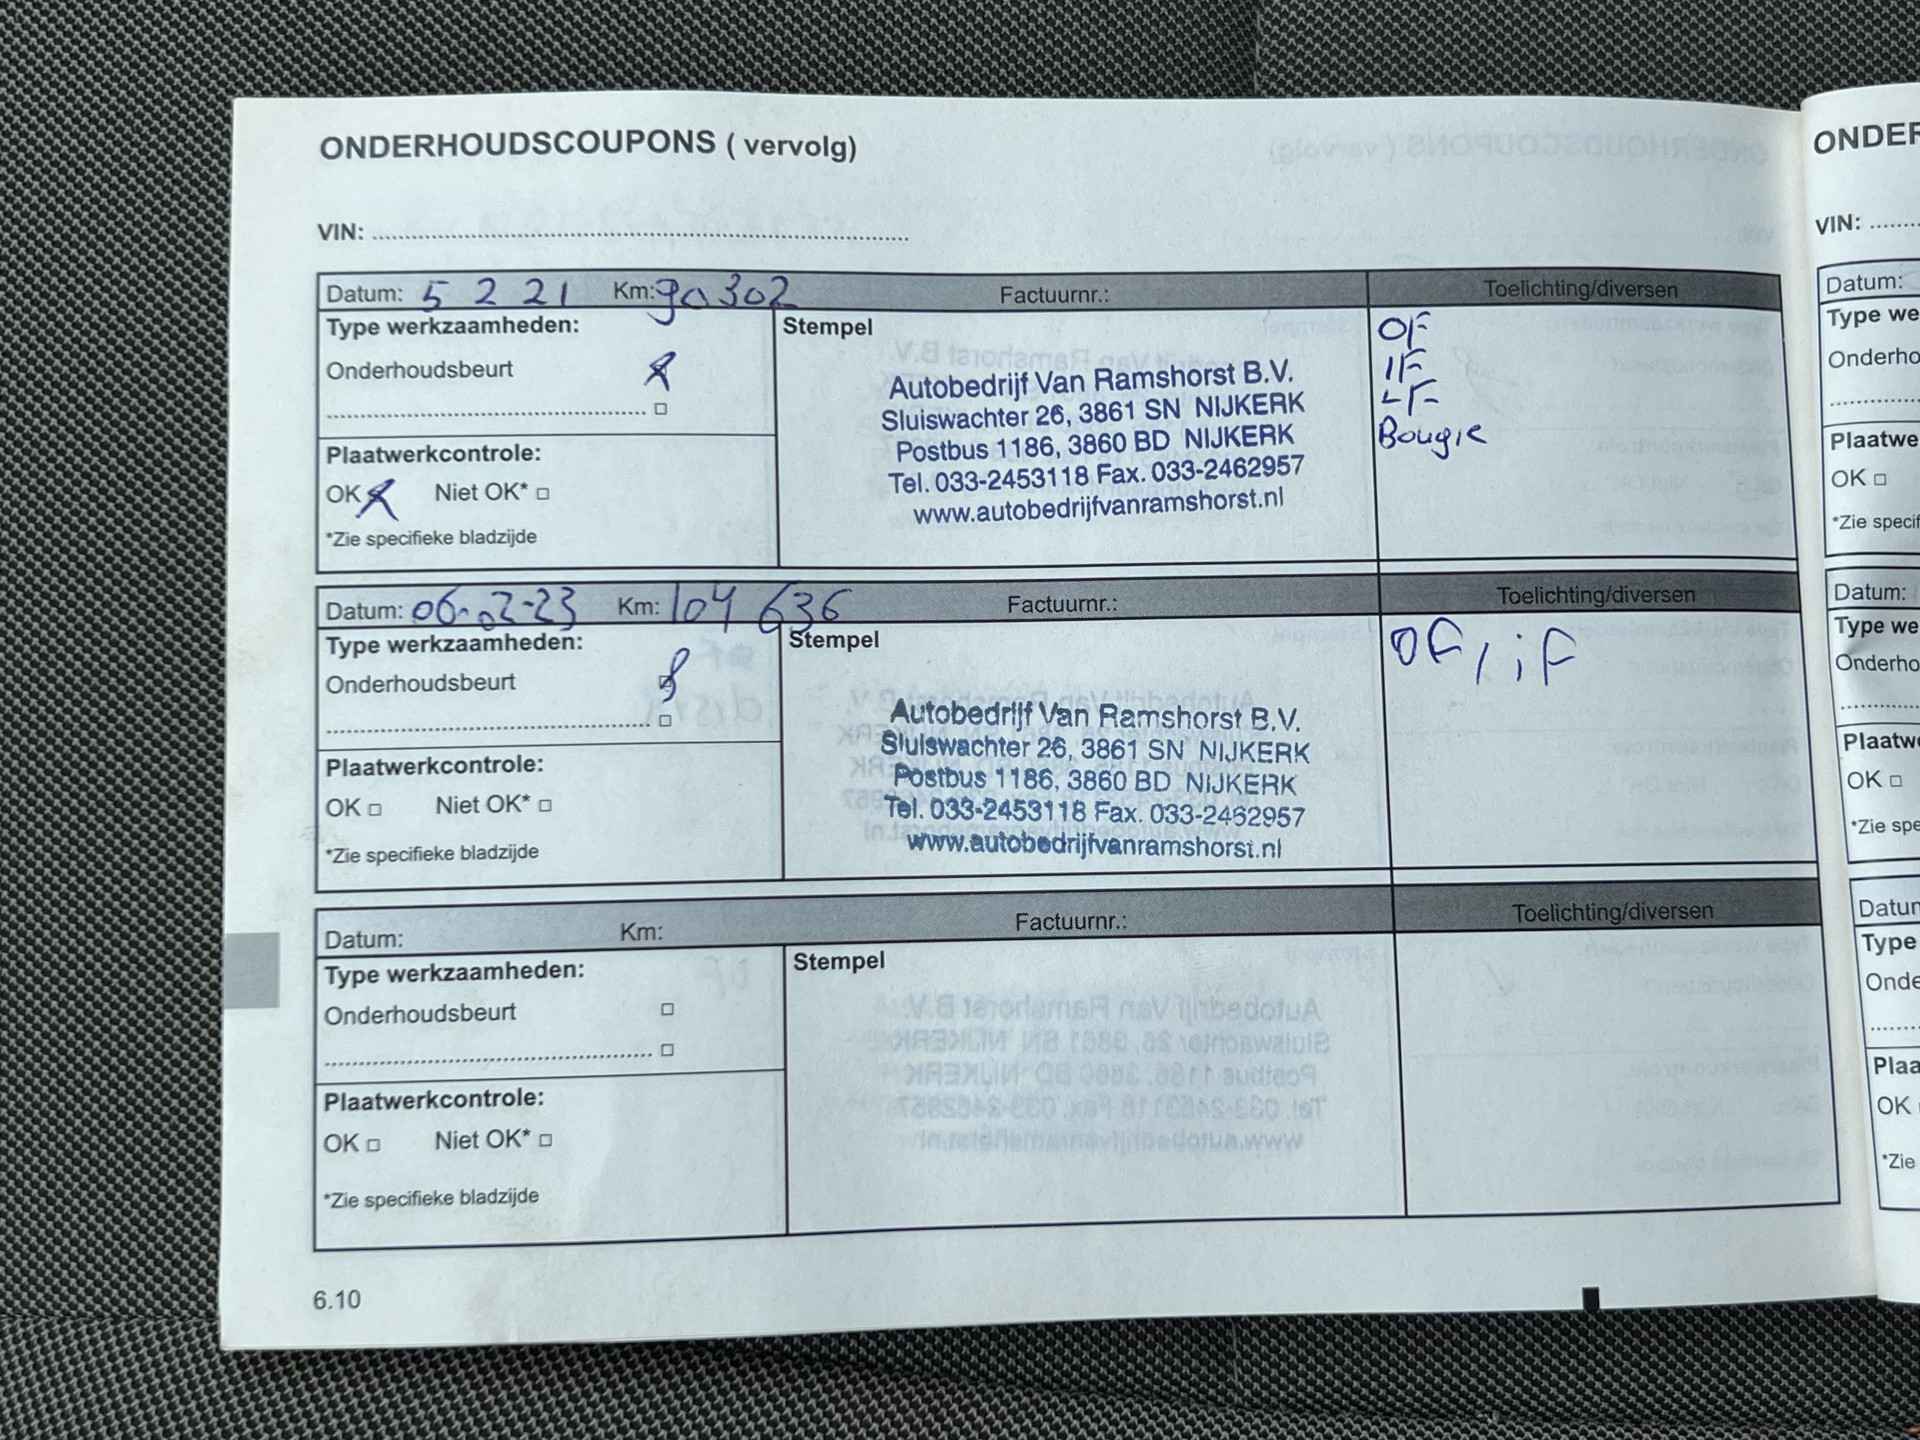 ONDERHOUDSCOUPONS ( vervolg)
VIN:
Datum: 5 2 21 Km: 90302 Factuurnr.: Toelichting/diversen
Type werkzaamheden:
Onderhoudsbeurt
Plaatwerkcontrole:
OK Niet OK*
*Zie specifieke bladzijde
Stempel
Autobedrijf Van Ramshorst B.V.
Sluiswachter 26, 3861 SN NIJKERK
Postbus 1186, 3860 BD NIJKERK
Tel. 033-2453118 Fax. 033-2462957
www.autobedrijfvanramshorst.nl
OF
IF
LF
Bougie
Datum: 06-02-23 Km: 104 636 Factuurnr.: Toelichting/diversen
Type werkzaamheden:
Onderhoudsbeurt
Plaatwerkcontrole:
OK Niet OK*
*Zie specifieke bladzijde
Stempel
Autobedrijf Van Ramshorst B.V.
Sluiswachter 26, 3861 SN NIJKERK
Postbus 1186, 3860 BD NIJKERK
Tel. 033-2453118 Fax. 033-2462957
www.autobedrijfvanramshorst.nl
OF / iF
Datum: Km: Factuurnr.: Toelichting/diversen
Type werkzaamheden:
Onderhoudsbeurt
Plaatwerkcontrole:
OK Niet OK*
*Zie specifieke bladzijde
Stempel
6.10
ONDER
VIN:
Datum:
Type we
Onderho
Plaatwe
OK
*Zie specif
Datum:
Type we
Onderho
Plaatw
OK
*Zie spe
Datur
Type
Onde
Plaa
OK
*Zie